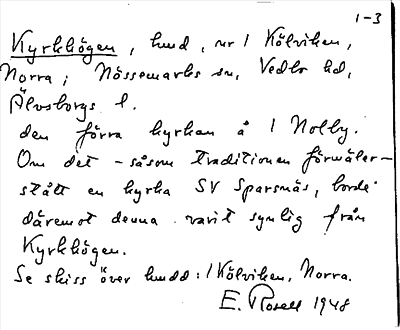 1-3
Kyrkhögen, hmd, nr 1 Kölviken,
Norra; Nössemarks sn, Vedbo hd,
Älvsborgs l.
den förra kyrkan å 1 Nolby.
Om det - såsom traditionen förmäler -
stått en kyrka SV Sparsnäs, borde
däremot denna varit synlig från
Kyrkhögen.
Se skiss över hmdd: 1 Kölviken, Norra.
E. Rosell 1948